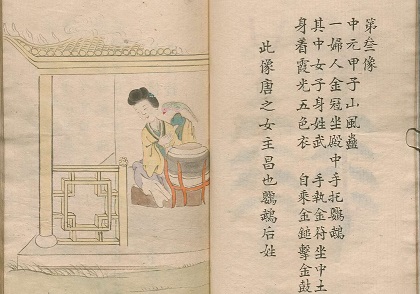 第叁像
中元甲子山風蠱
一婦人金冠坐殿中手托鸚鵡
其中女子身姓武　手執金符坐中土
身着霞光五色衣　自乘金鎚擊金鼓
此像唐之女主昌也鸚鵡后姓